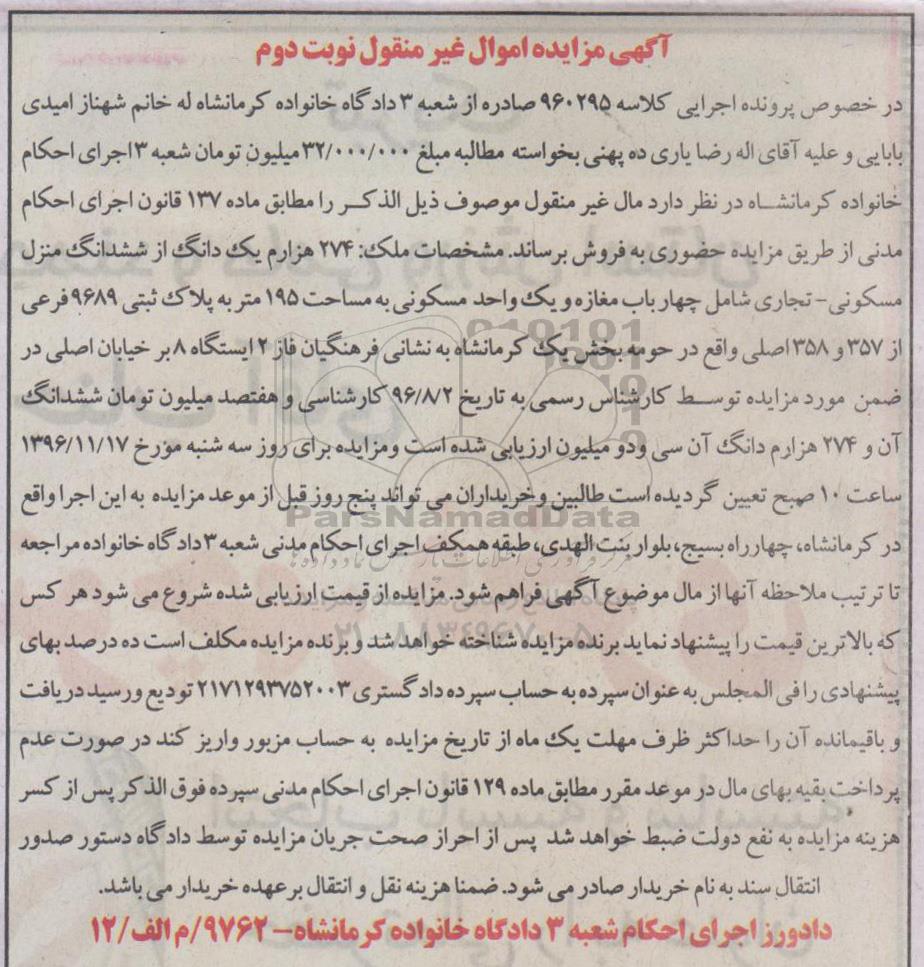 آگهی مزایده اموال غیر منقول نوبت دوم
در خصوص پرونده اجرایی کلاسه ۹۶۰۲۹۵ صادره از شعبه ۳ دادگاه خانواده کرمانشاه له خانم شهناز امیدی
بابایی و علیه آقای اله رضا یاری ده پهنی بخواسته مطالبه مبلغ ۳۲/۰۰۰/۰۰۰ میلیون تومان شعبه ۳ اجرای احکام
خانواده کرمانشاه در نظر دارد مال غیر منقول موصوف ذیل الذکر را مطابق ماده ۱۳۷ قانون اجرای احکام
مدنی از طریق مزایده حضوری به فروش برساند. مشخصات ملک: ۲۷۴ هزارم یک دانگ از ششدانگ منزل
مسکونی - تجاری شامل چهار باب مغازه و یک واحد مسکونی به مساحت ۱۹۵ متر به پلاک ثبتی ۹۶۸۹ فرعی
از ۳۵۷ و ۳۵۸ اصلی واقع در حومه بخش یک کرمانشاه به نشانی فرهنگیان فاز ۲ ایستگاه ۸ بر خیابان اصلی در
ضمن مورد مزایده توسط کارشناس رسمی به تاریخ ۹۶/۸/۲ کارشناسی و هفتصد میلیون تومان ششدانگ
آن و ۲۷۴ هزارم دانگ آن سی ودو میلیون ارزیابی شده است ومزایده برای روز سه شنبه مورخ ۱۳۹۶/۱۱/۱۷
ساعت ۱۰ صبح تعیین گردیده است طالبین وخریداران می تواند پنج روز قبل از موعد مزایده به این اجرا واقع
ParsNamadData
در کرمانشاه، چهارراه بسیج، بلوار بنت الهدی، طبقه همکف اجرای احکام مدنی شعبه ۳ دادگاه خانواده مراجعه
تا ترتیب ملاحظه آنها از مال موضوع آگهی فراهم شود. مزایده از قیمت ارزیابی شده شروع می شود هر کس
که بالاترین قیمت را پیشنهاد نماید برنده مزایده شناخته خواهد شد و برنده مزایده مکلف است ده درصد بهای
پیشنهادی را فی المجلس به عنوان سپرده به حساب سپرده دادگستری ۲۱۷۱۲۹۳۷۵۲۰۰۳ تودیع ورسید دریافت
و باقیمانده آن را حداکثر ظرف مهلت یک ماه از تاریخ مزایده به حساب مزبور واریز کند در صورت عدم
پرداخت بقیه بهای مال در موعد مقرر مطابق ماده ۱۲۹ قانون اجرای احکام مدنی سپرده فوق الذکر پس از کسر
هزینه مزایده به نفع دولت ضبط خواهد شد پس از احراز صحت جریان مزایده توسط دادگاه دستور صدور
انتقال سند به نام خریدار صادر می شود. ضمنا هزینه نقل و انتقال بر عهده خریدار می باشد.
دادورز اجرای احکام شعبه ۳ دادگاه خانواده کرمانشاه - ۹۷۶۲/م الف/۱۲